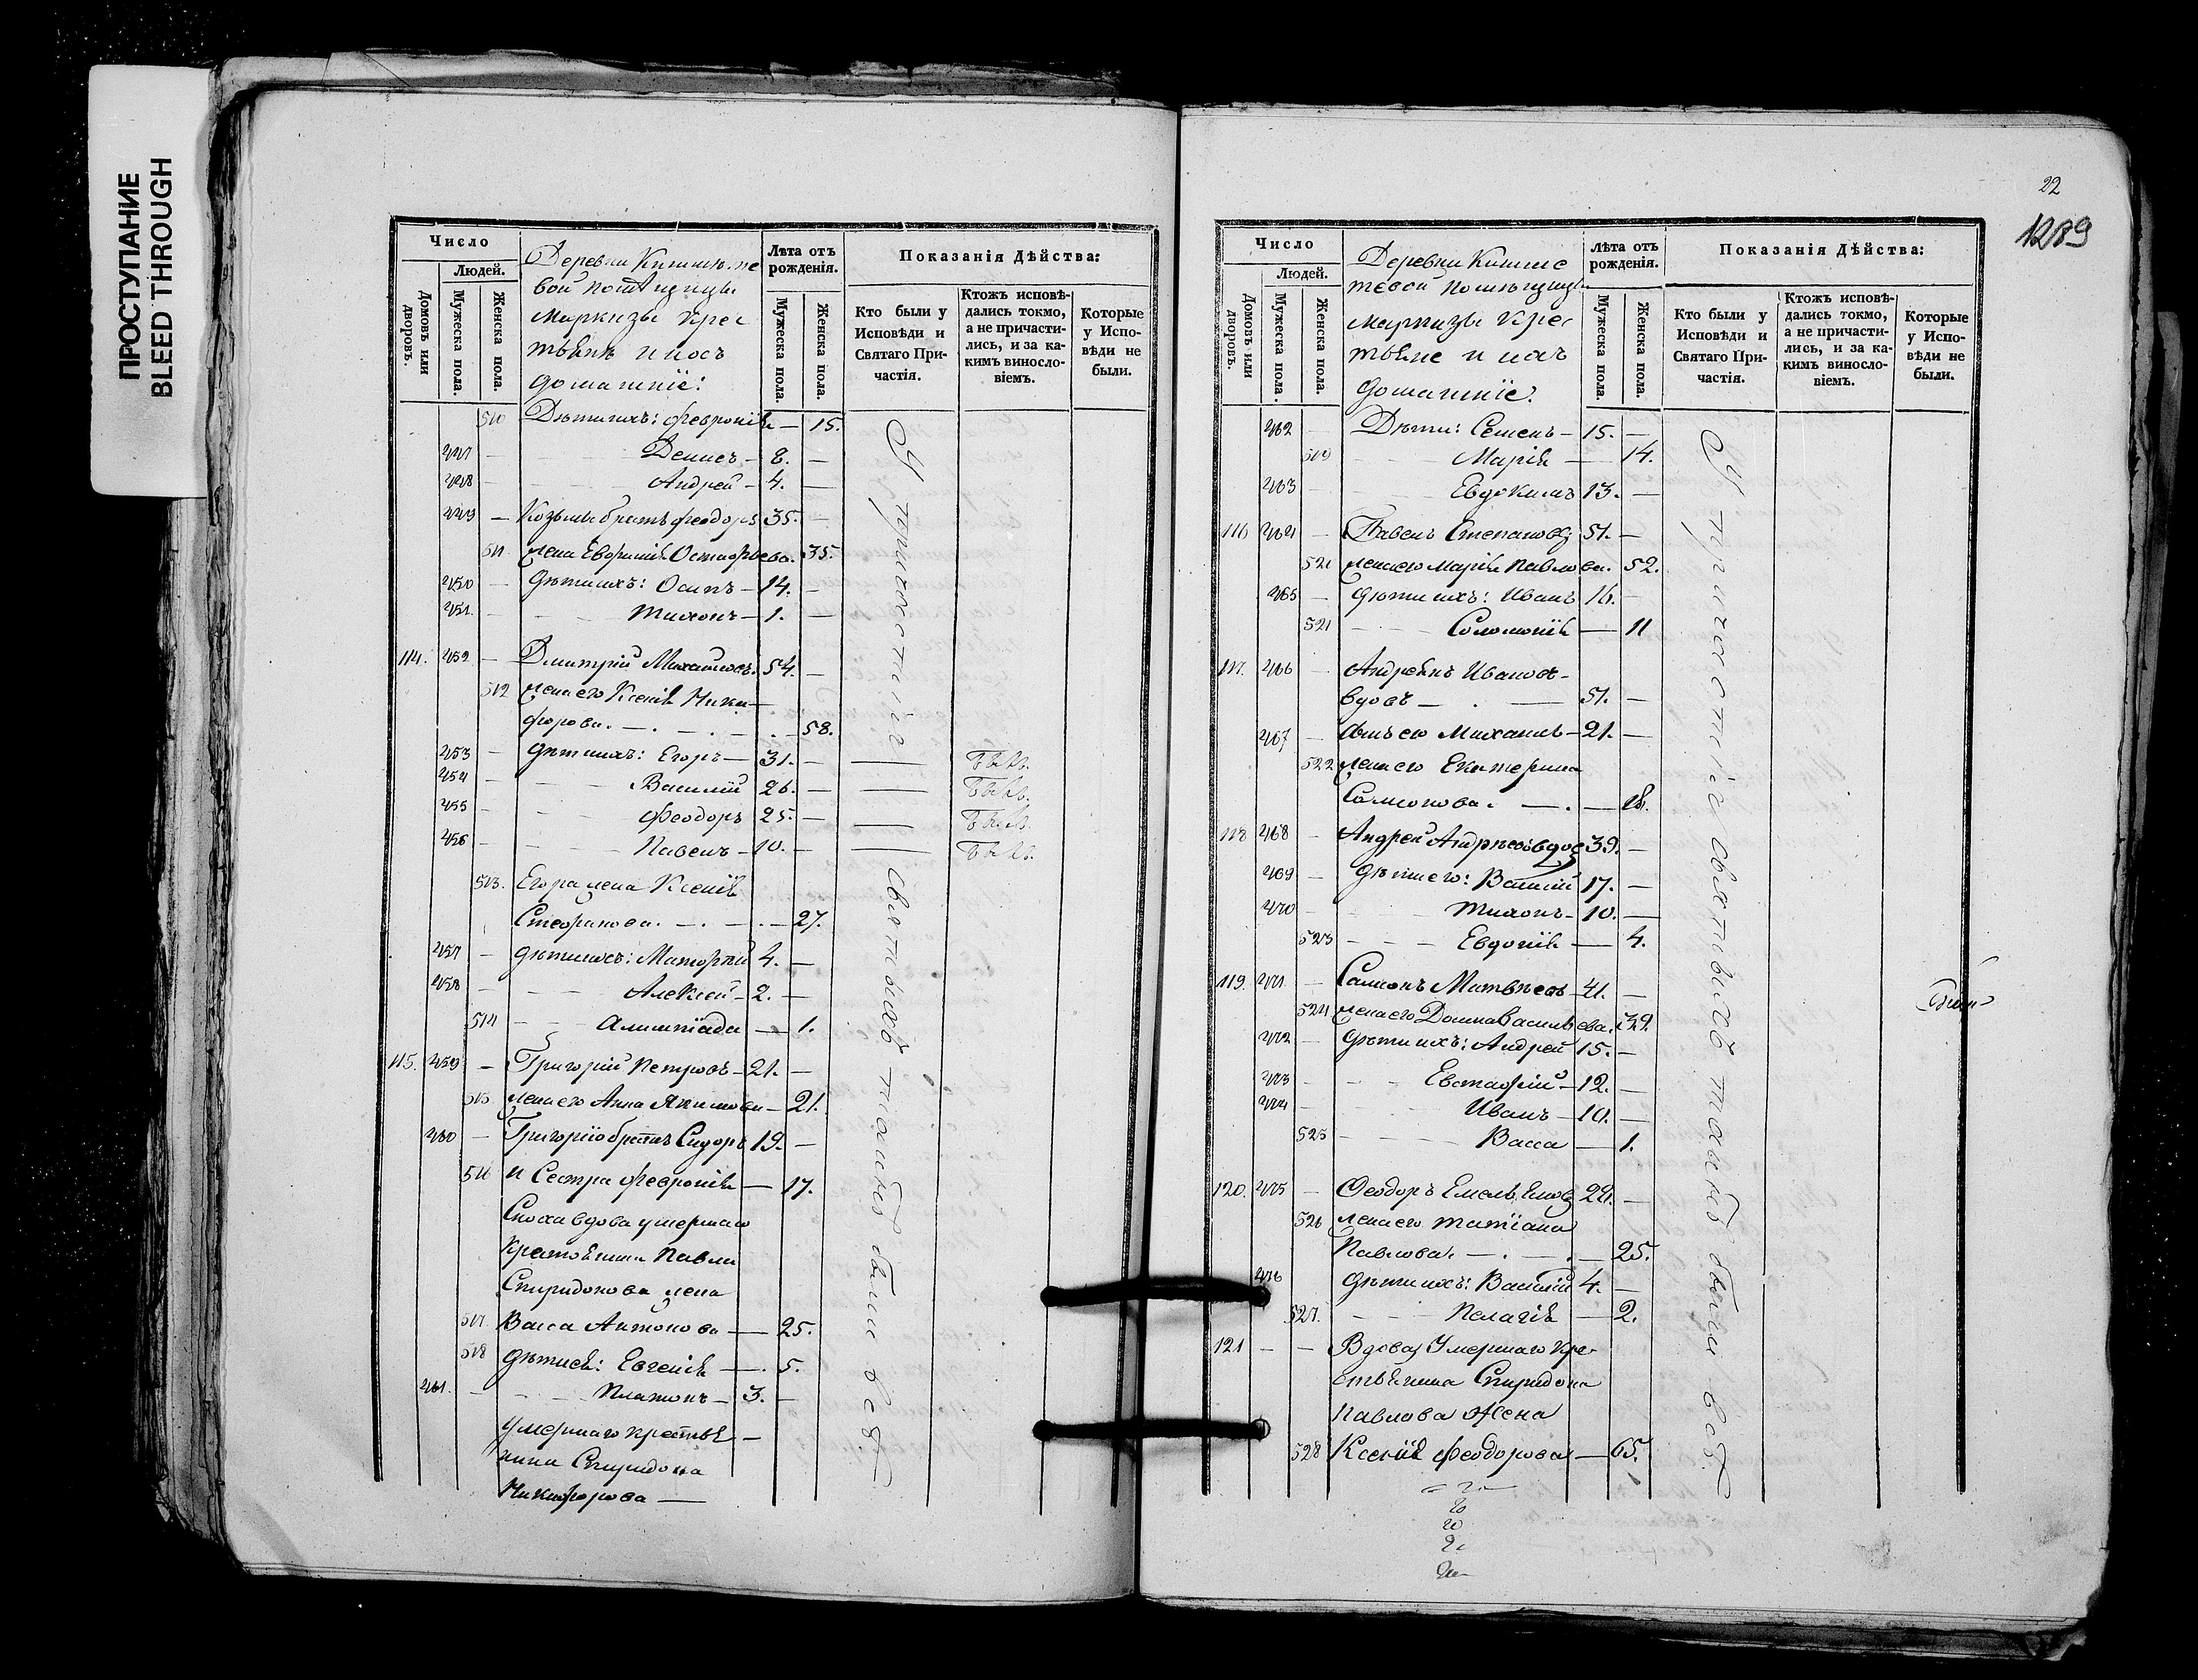 ПРОСТУПАНИЕ
BLEED THROUGH
Число
Людей.
Домовъ или дворовъ.
Мужеска пола.
Женска пола.
Деревни
вой помѣщицы
Маркизы Крес
тьяне и ихъ
домашніе:
Лѣта отъ рожденія.
Мужеска пола.
Женска пола.
Показанія Дѣйства:
Кто были у Исповѣди и Святаго Причастія.
Ктожъ исповѣдались токмо, а не причастились, и за какимъ винословіемъ.
Которые у Исповѣди не были.
510 Дѣти ихъ: Февронія — 15.
447 — Денисъ — 8. —
448 — Андрей — 4. —
449 — Козьмы братъ Феодоръ 35. —
511 жена Евфимія Остафьева. 35.
450 — дѣти ихъ: Осипъ — 14. —
451 — Тихонъ — 1. —
114. 452 — Дмитрій Михайловъ. 54. —
512 жена его Ксенія Ники—
форова. — 58.
453 — дѣти ихъ: Егоръ — 31. — Былъ.
454 — Василій 26. — Былъ.
455 — Феодоръ 25. — Былъ.
456 — Павелъ — 10. — Былъ.
513. Егора жена Ксенія
Стефанова. — 27.
457 — дѣти ихъ: Матофей 4. —
458 — Алексей — 2. —
514 — Алимпіада — 1.
115. 459 — Григорій Петровъ — 21. —
515 жена его Анна Якимова — 21.
460 — Григорія братъ Сидоръ 19. —
516 и Сестра Февронія — 17.
Сноха вдова умершаго
Крестьянина Павла
Спиридонова жена
517. Васса Антонова — 25.
518 дѣти ея: Евгенія — 5.
461. — Платонъ — 3. —
умершаго крестья—
нина Спиридона
Никифорова —
У причастія святыхъ таинъ были всѣ
22
1289
Число
Людей.
Домовъ или дворовъ.
Мужеска пола.
Женска пола.
Деревни
тевой помѣщицы
Маркизы Крес
тьяне и ихъ
домашніе.
Лѣта отъ рожденія.
Мужеска пола.
Женска пола.
Показанія Дѣйства:
Кто были у Исповѣди и Святаго Причастія.
Ктожъ исповѣдались токмо, а не причастились, и за какимъ винословіемъ.
Которые у Исповѣди не были.
462 — Дѣти: Семенъ — 15. —
519 Марія — 14.
463 — Евдокимъ 13. —
116 464 — Павелъ Степановъ 51. —
521 жена его Марія Павлова. 52.
465 — дѣти ихъ: Иванъ 16. —
521 — Соломонія — 11
117. 466 — Андреянъ Ивановъ —
вдовъ — 51. —
467 — сынъ его Михаилъ — 21. —
522 жена его Екатерина
Самсонова. — 18.
118 468 — Андрей Андреевъ вдов 39. —
469 — дѣти его: Василій 17. —
470 — Тихонъ — 10. —
523 — Евдокія — 4.
119. 471. — Самсонъ Матвѣевъ — 41. —
524 жена его Домна Васильева. 39.
472 — дѣти ихъ: Андрей 15. —
473 — Евстафій — 12. —
474 — Иванъ — 10. —
525 — Васса — 1.
120. 475 — Феодоръ Емельяновъ 28. —
526 жена его Татіана
Павлова. — 25.
476 дѣти ихъ: Василій 4. —
527. — Пелагія — 2.
121 — — Вдова Умершаго Кре-
стьянина Спиридона
Павлова Жена
528 Ксенія Феодорова — 65.
У причастія святыхъ таинъ были всѣ